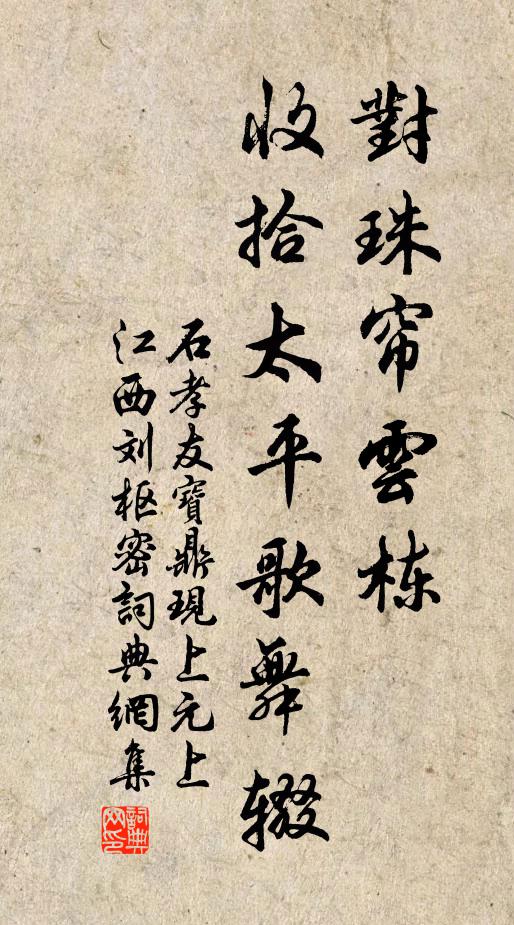 對珠帘雲栋
收拾太平歌舞辍
石孝友寶鼎現上元上
江西刘枢密詞典網集
詞典
网印